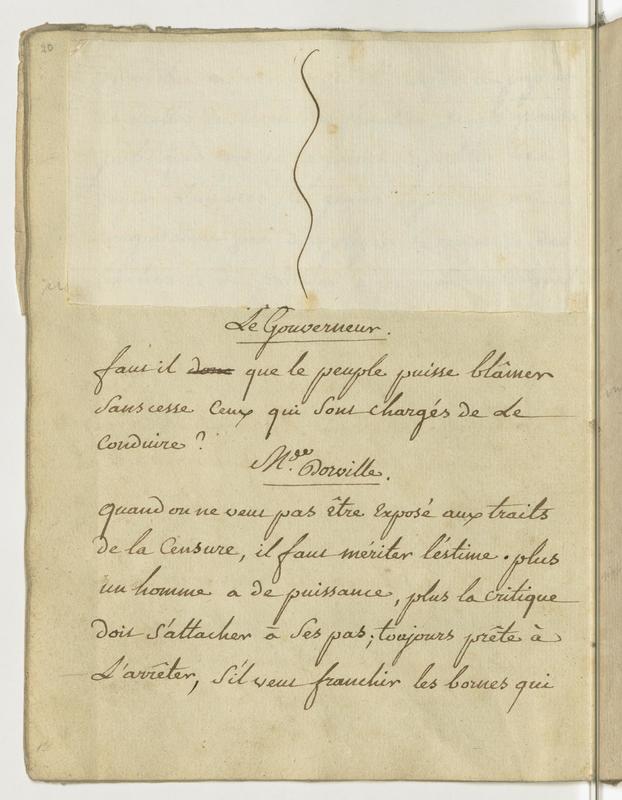 20
Le Gouverneur.
faut il donc que le peuple puisse blâmer
sans cesse ceux qui sont chargés de le
conduire ?
M.de Dorville.
quand on ne veut pas être exposé aux traits
de la censure, il faut mériter l'éstime. plus
un homme a de puissance, plus la critique
doit s'attacher à ses pas; toujours prête à
l'arrêter, s'il veut franchir les bornes qui